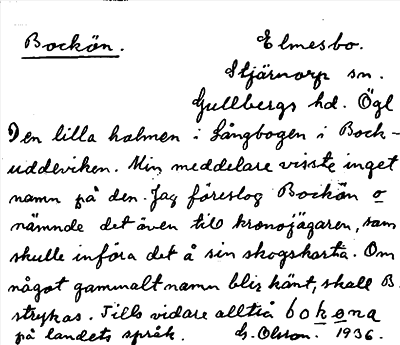 Bockön.
Elmesbo.
Stjärnorp sn.
Gullbergs hd. Ögl
Den lilla holmen i Långbogen i Bock-
uddeviken. Min meddelare visste inget
namn på den. Jag föreslog Bockön o
nämnde det även till kronojägaren, som
skulle införa det å sin skogskarta. Om
något gammalt namn blir känt, skall B.
strykas. Tills vidare alltså bokøna
på landets språk. G. Olsson. 1936.